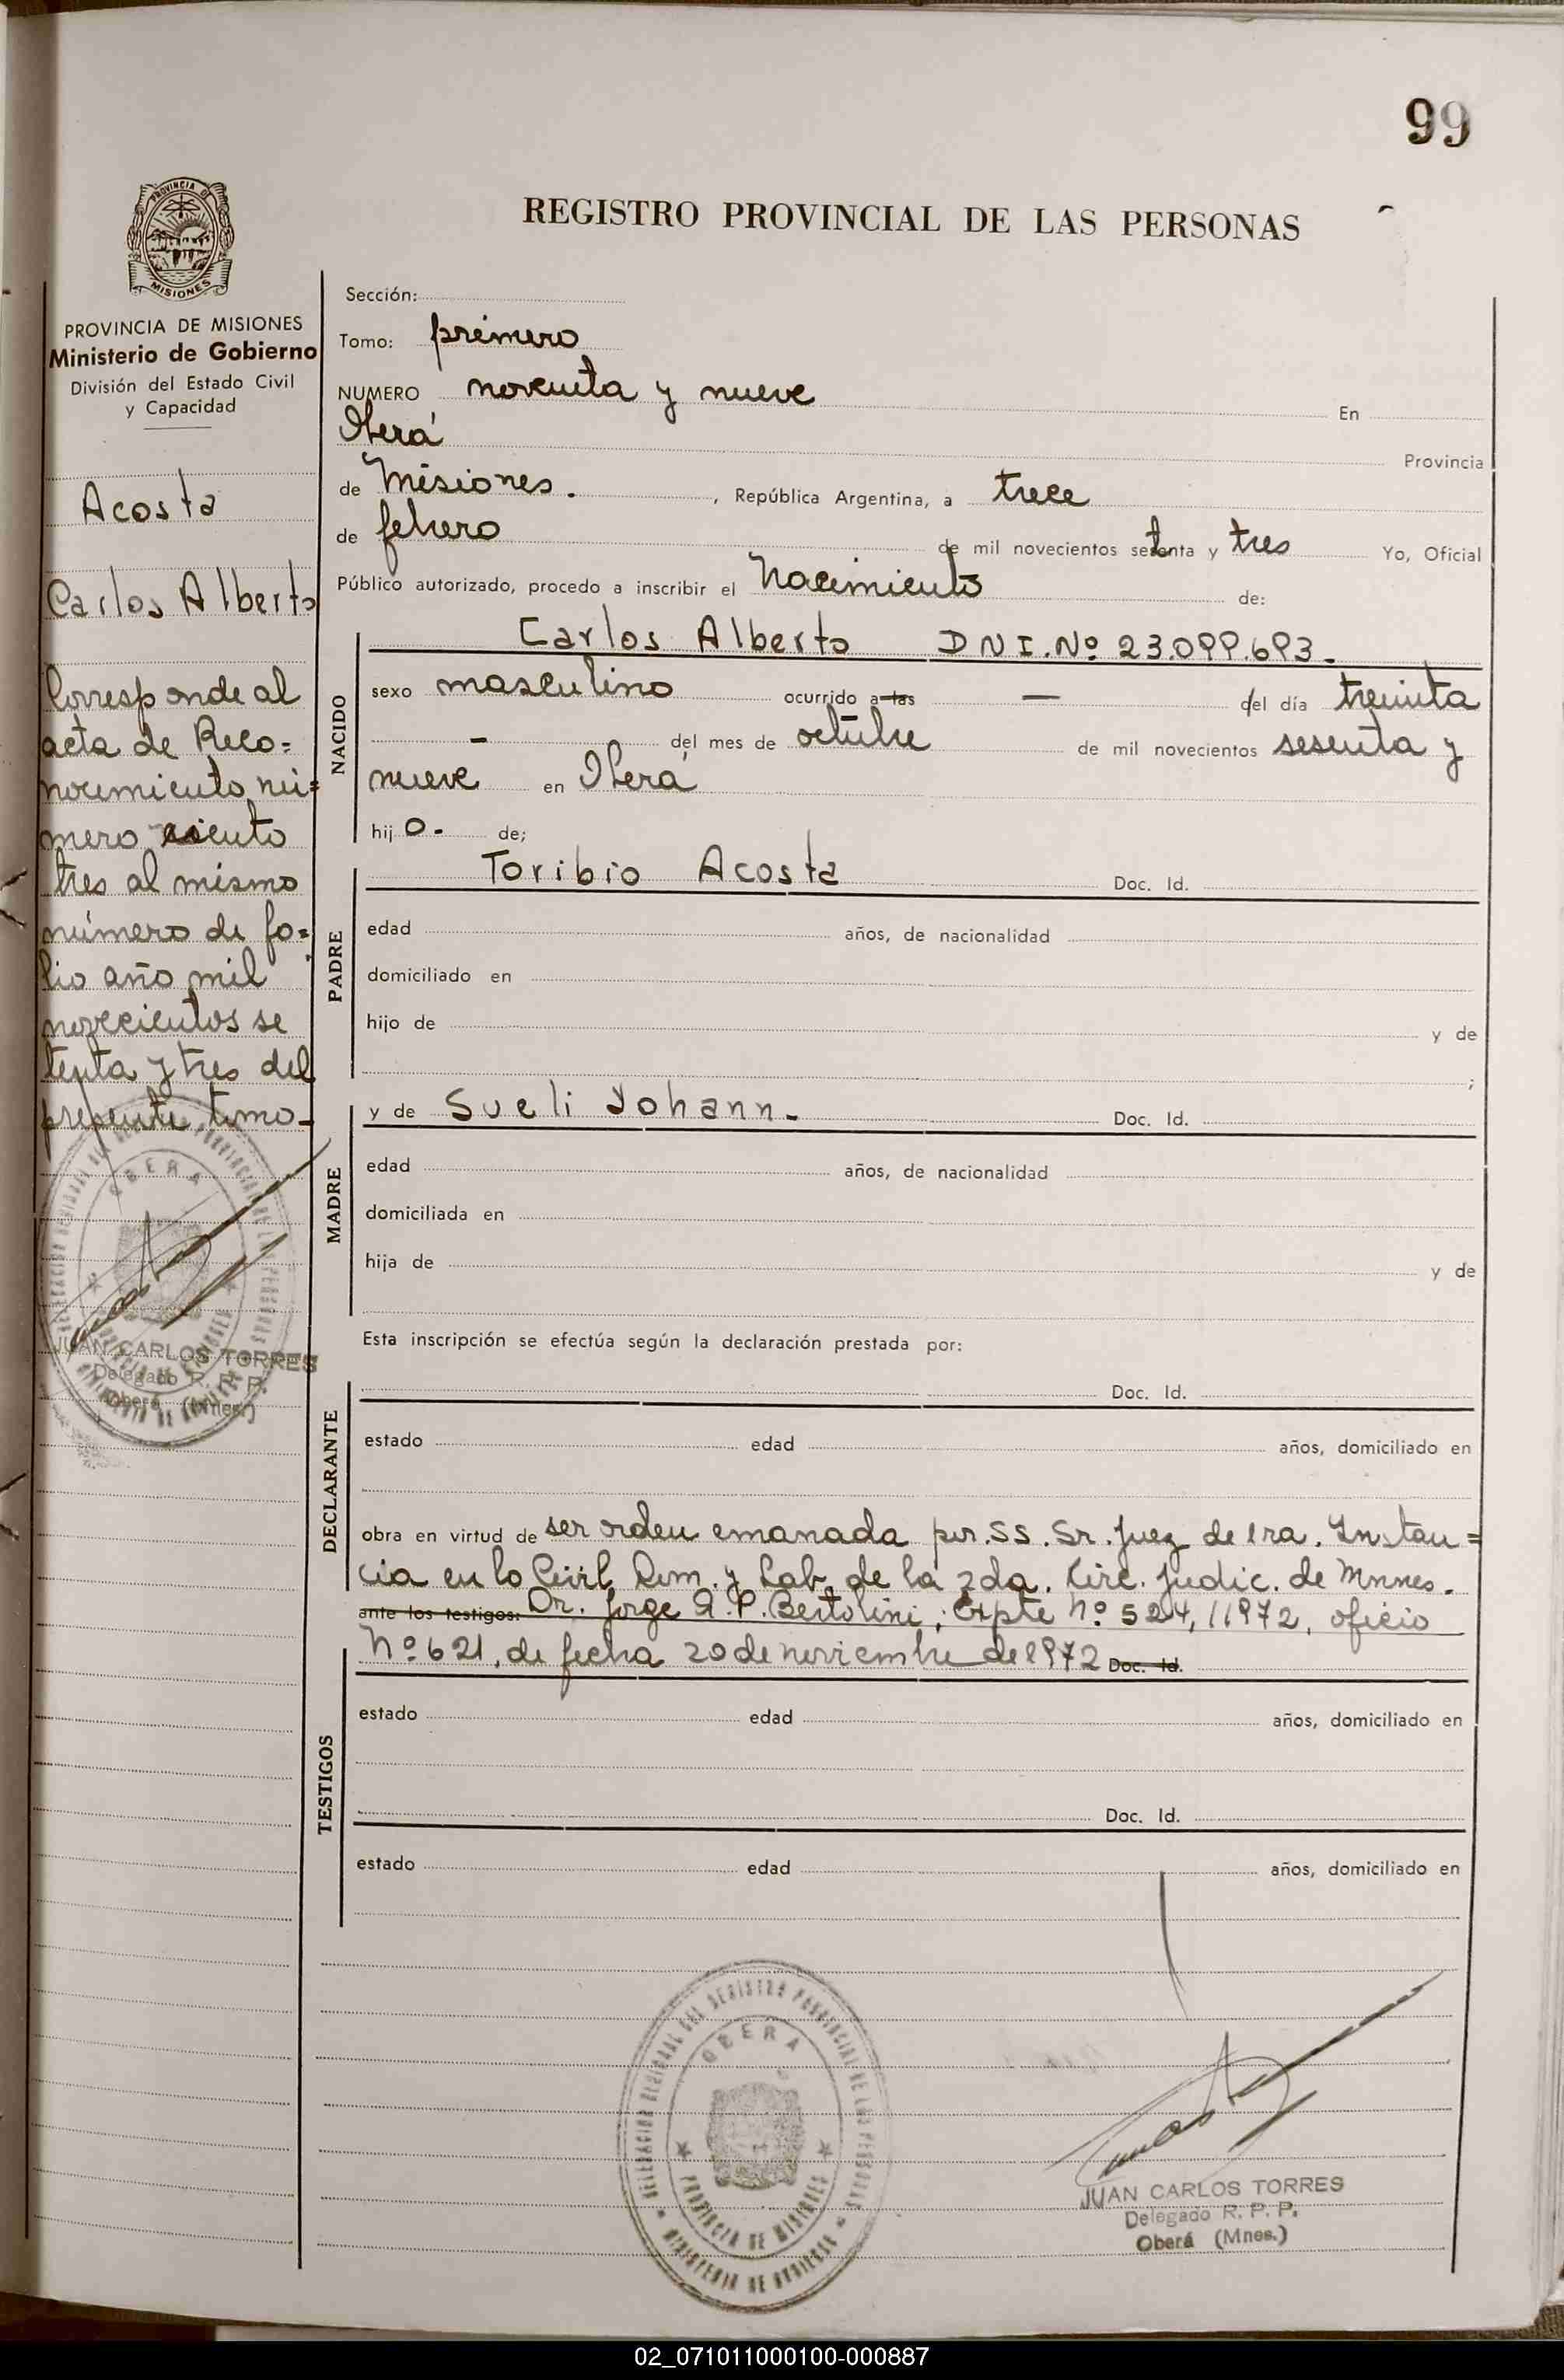 99
REGISTRO PROVINCIAL DE LAS PERSONAS
PROVINCIA DE MISIONES
PROVINCIA DE MISIONES
Ministerio de Gobierno
División del Estado Civil
y Capacidad
Acosta
Carlos Alberto
Corresponde al
acta de Reco=
nocimiento nú=
mero ciento
tres al mismo
número de fo=
lio año mil
novecientos se
tenta y tres del
presente tomo-
OBERA
JUAN CARLOS TORRES
Delegado R. P. P.
Oberá (Mnes.)
Sección:
Tomo: primero
NUMERO noventa y nueve En
Oberá Provincia
de Misiones. , República Argentina, a trece
de febrero de mil novecientos setenta y tres Yo, Oficial
Público autorizado, procedo a inscribir el Nacimiento de:
NACIDO
Carlos Alberto DNI.Nº 23.099.693.-
sexo masculino ocurrido a las — del día treinta
- del mes de octubre de mil novecientos sesenta y
nueve en Oberá
hij o.- de;
PADRE
Toribio Acosta Doc. Id.
edad años, de nacionalidad
domiciliado en
hijo de y de
;
MADRE
y de Sueli Johann.- Doc. Id.
edad años, de nacionalidad
domiciliada en
hija de y de
Esta inscripción se efectúa según la declaración prestada por:
DECLARANTE
Doc. Id.
estado edad años, domiciliado en
obra en virtud de ser orden emanada por SS. Sr. Juez de 1ra. Instan=
cia en lo Civil Com. y Lab. de la 2da. Circ. Judic. de Mnnes.
ante los testigos: Dr. Jorge A. P. Bertolini, Expte Nº 524, 1972, oficio
Nº 621, de fecha 20 de noviembre de 1972 Doc. Id.
TESTIGOS
estado edad años, domiciliado en
Doc. Id.
estado edad años, domiciliado en
DELEGACION REGIONAL DEL REGISTRO PROVINCIAL DE LAS PERSONAS
OBERA
PROVINCIA DE MISIONES
MINISTERIO DE GOBIERNO
JUAN CARLOS TORRES
Delegado R. P. P.
Oberá (Mnes.)
02_071011000100-000887